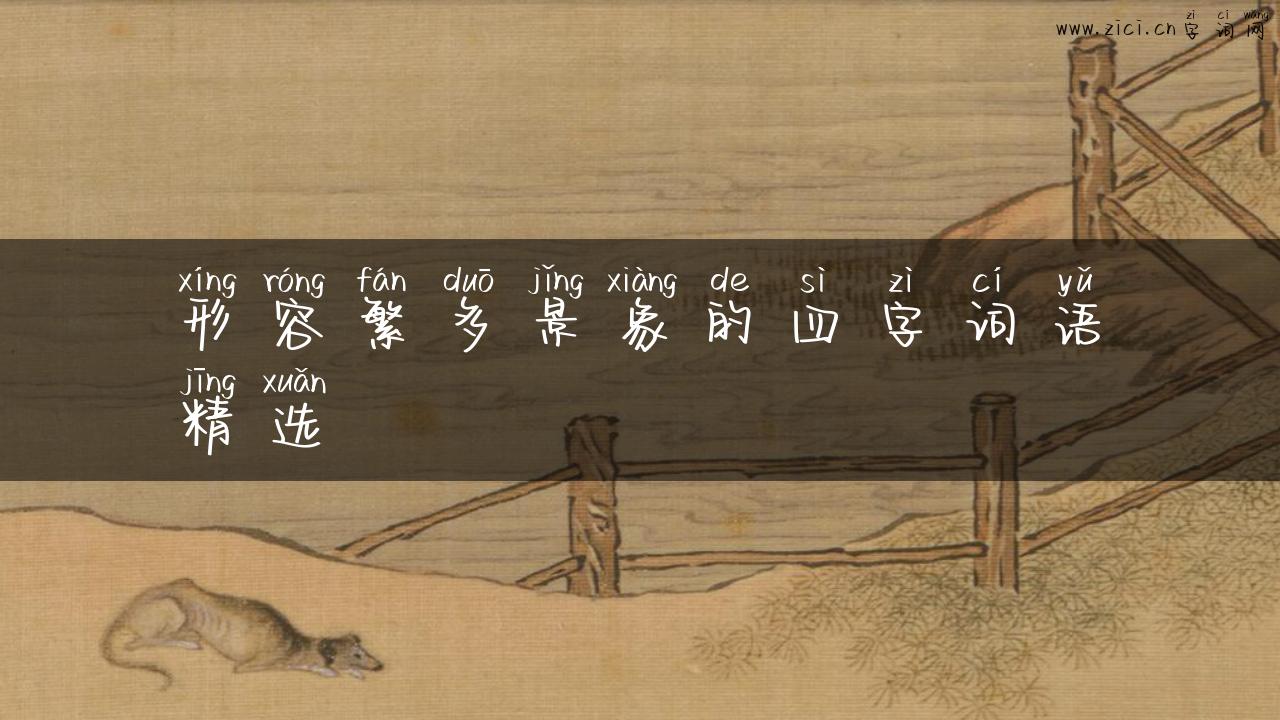 zì cí wǎng
www.zici.cn字词网
xíng róng fán duō jǐng xiàng de sì zì cí yǔ
形容繁多景象的四字词语
jīng xuǎn
精选